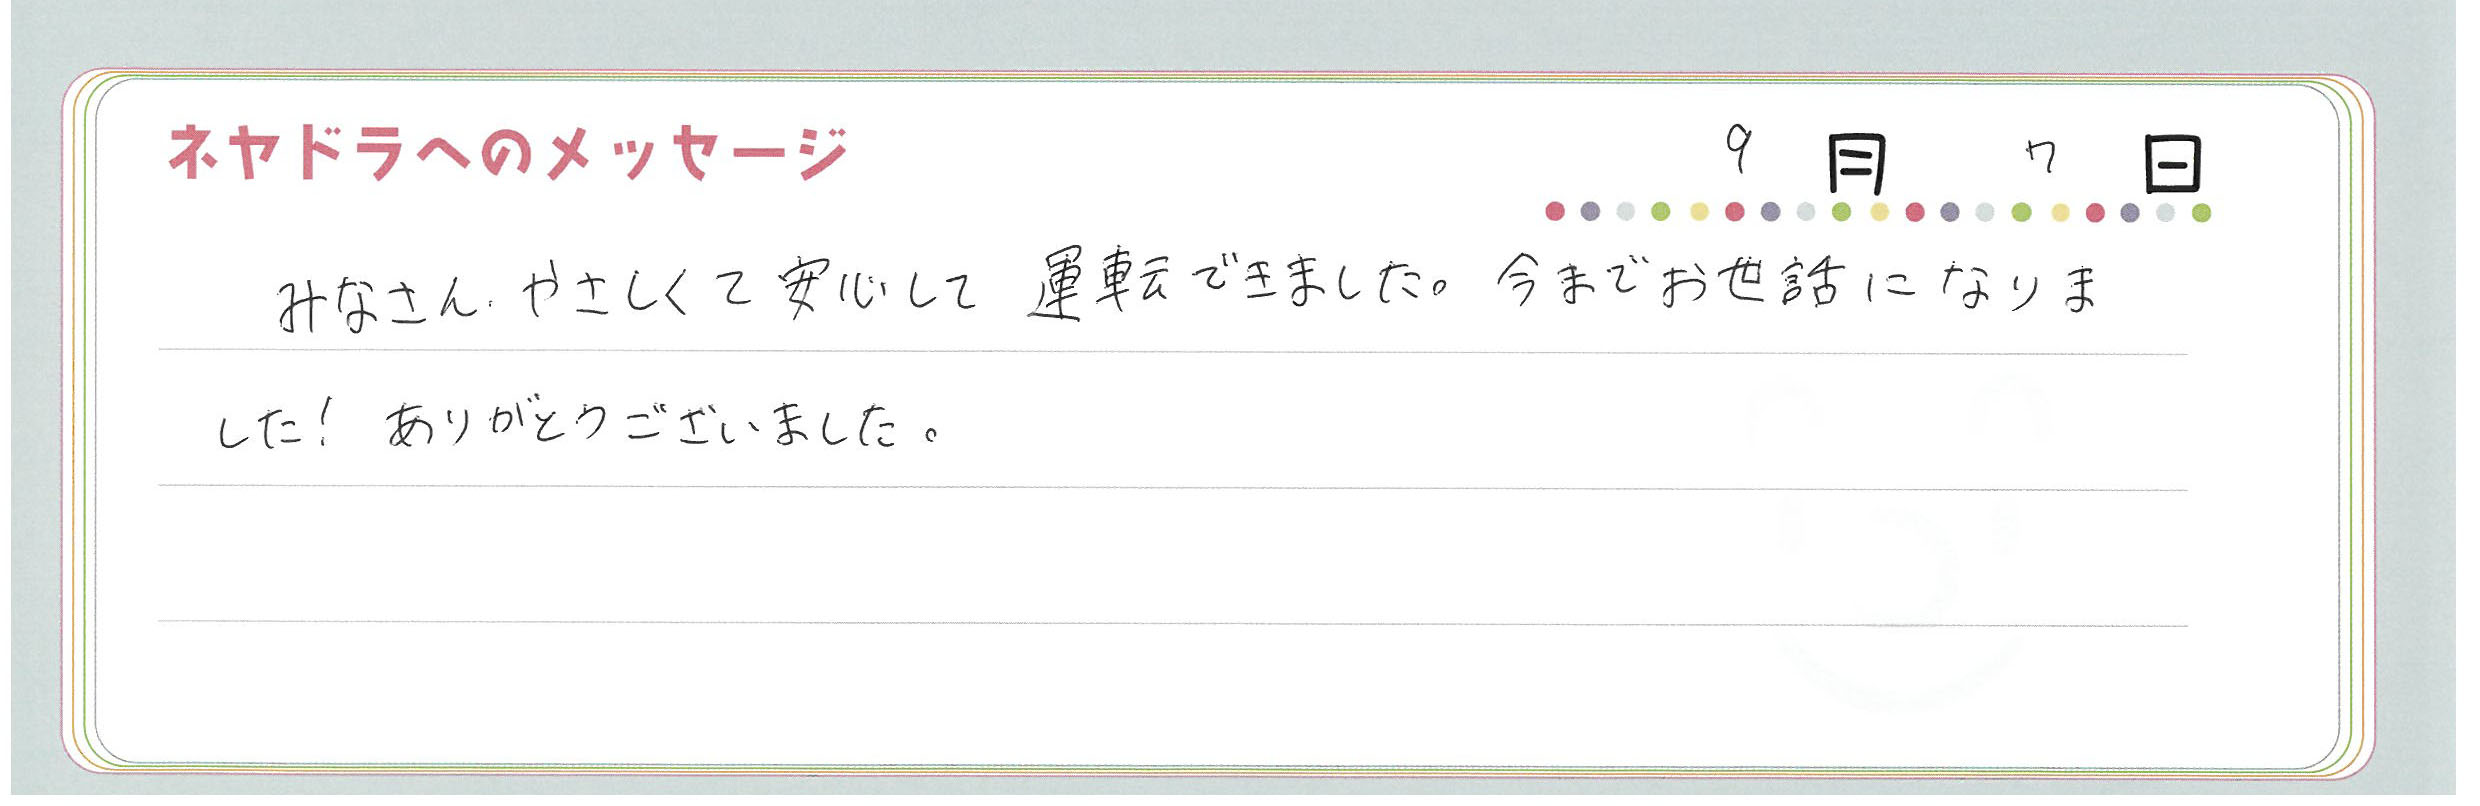 ネヤドラへのメッセージ
9月 7日
みなさん、やさしくて安心して運転できました。今までお世話になりま
した! ありがとうございました。